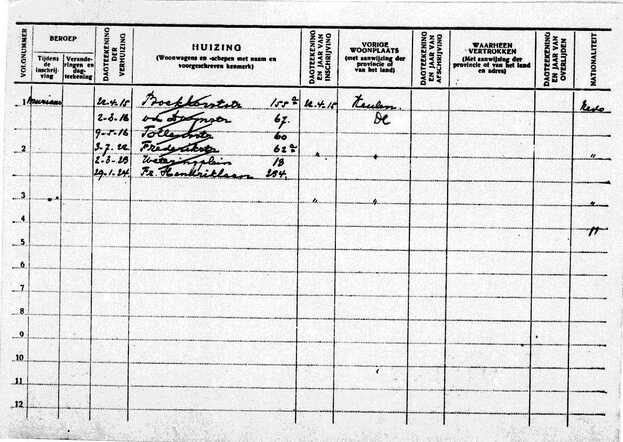 VOLGNUMMER
BEROEP
Tijdens de inschrijving
Veranderingen en dagteekening
DAGTEEKENING DER VERHUIZING
HUIZING
(Woonwagens en -schepen met naam en voorgeschreven kenmerk)
DAGTEEKENING EN JAAR VAN INSCHRIJVING
VORIGE WOONPLAATS
(met aanwijzing der provincie of van het land)
DAGTEEKENING EN JAAR VAN AFSCHRIJVING
WAARHEEN VERTROKKEN
(Met aanwijzing der provincie of van het land en adres)
DAGTEEKENING EN JAAR VAN OVERLIJDEN
NATIONALITEIT
1 22-4-15 155a 22-4-15 Keulen
2-3-16 67. De
9-5-16 60
2 3-7-22 Frederikstr 62a " " "
2-3-23 Wateringplein 18
29-1-24. Fr. Hendriklaan 284.
3 " " "
4 "
5
6
7
8
9
10
11
12